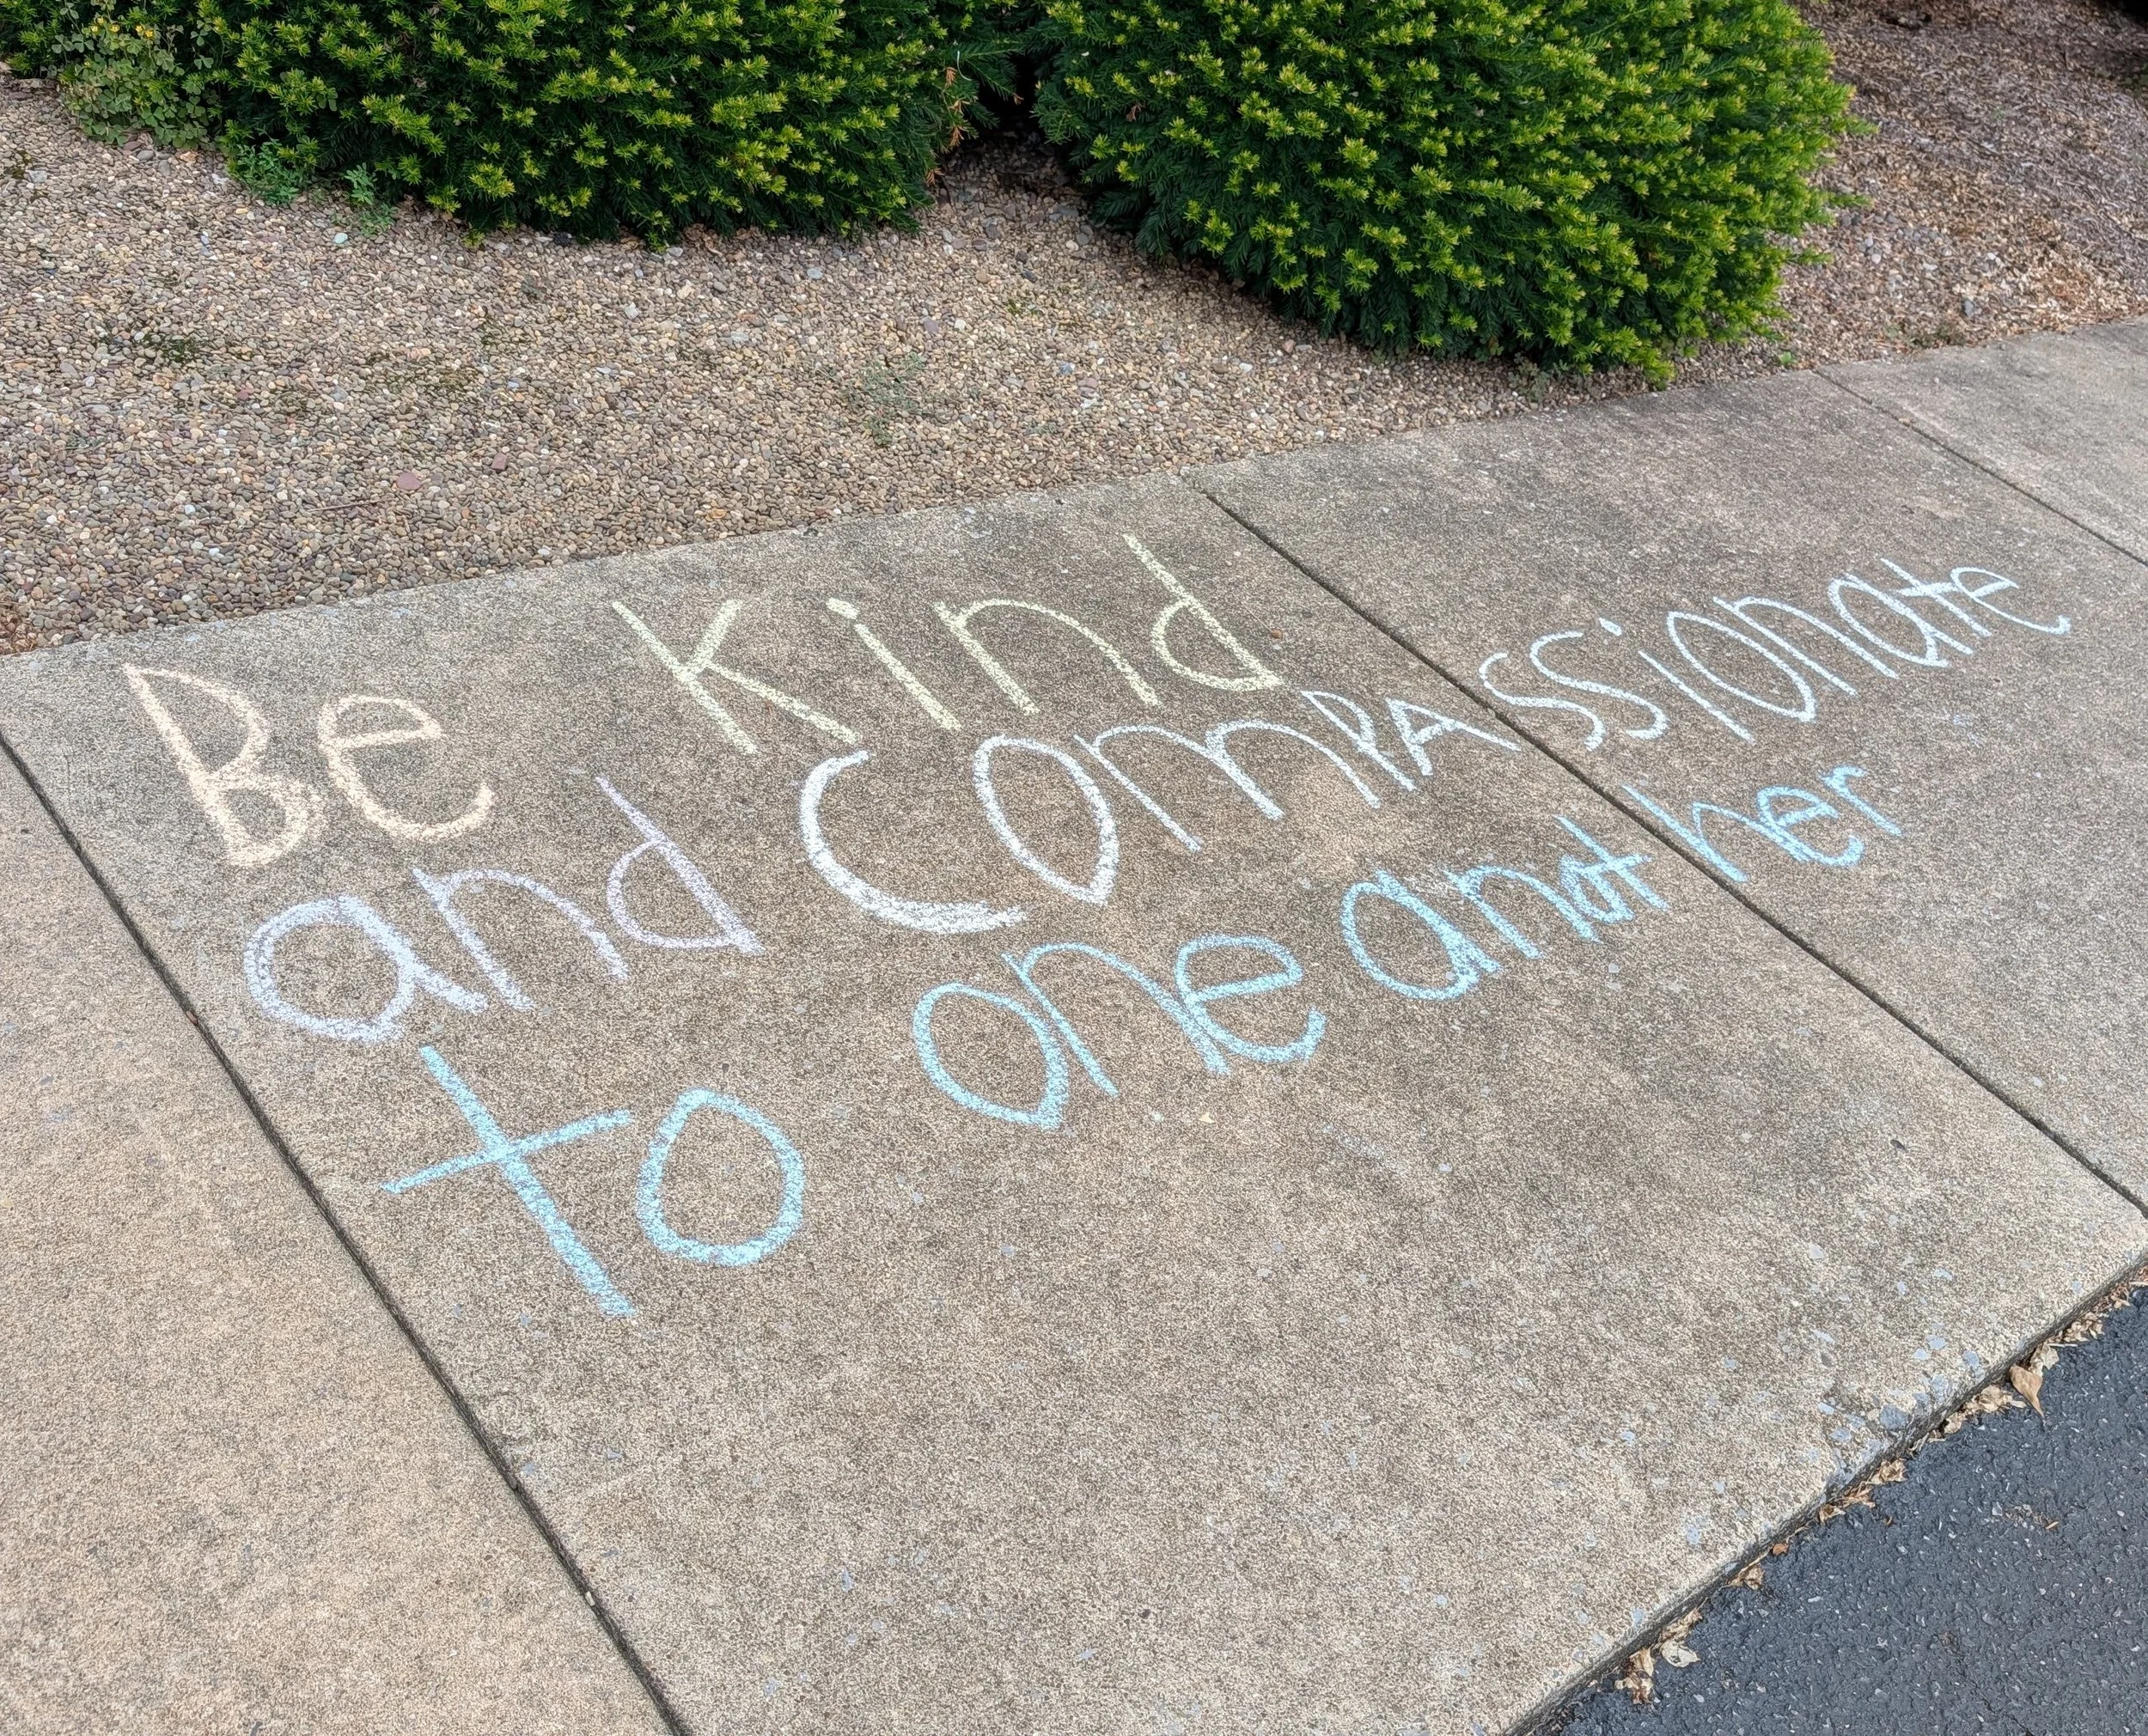 Be kind
and comPAssionate
to one another